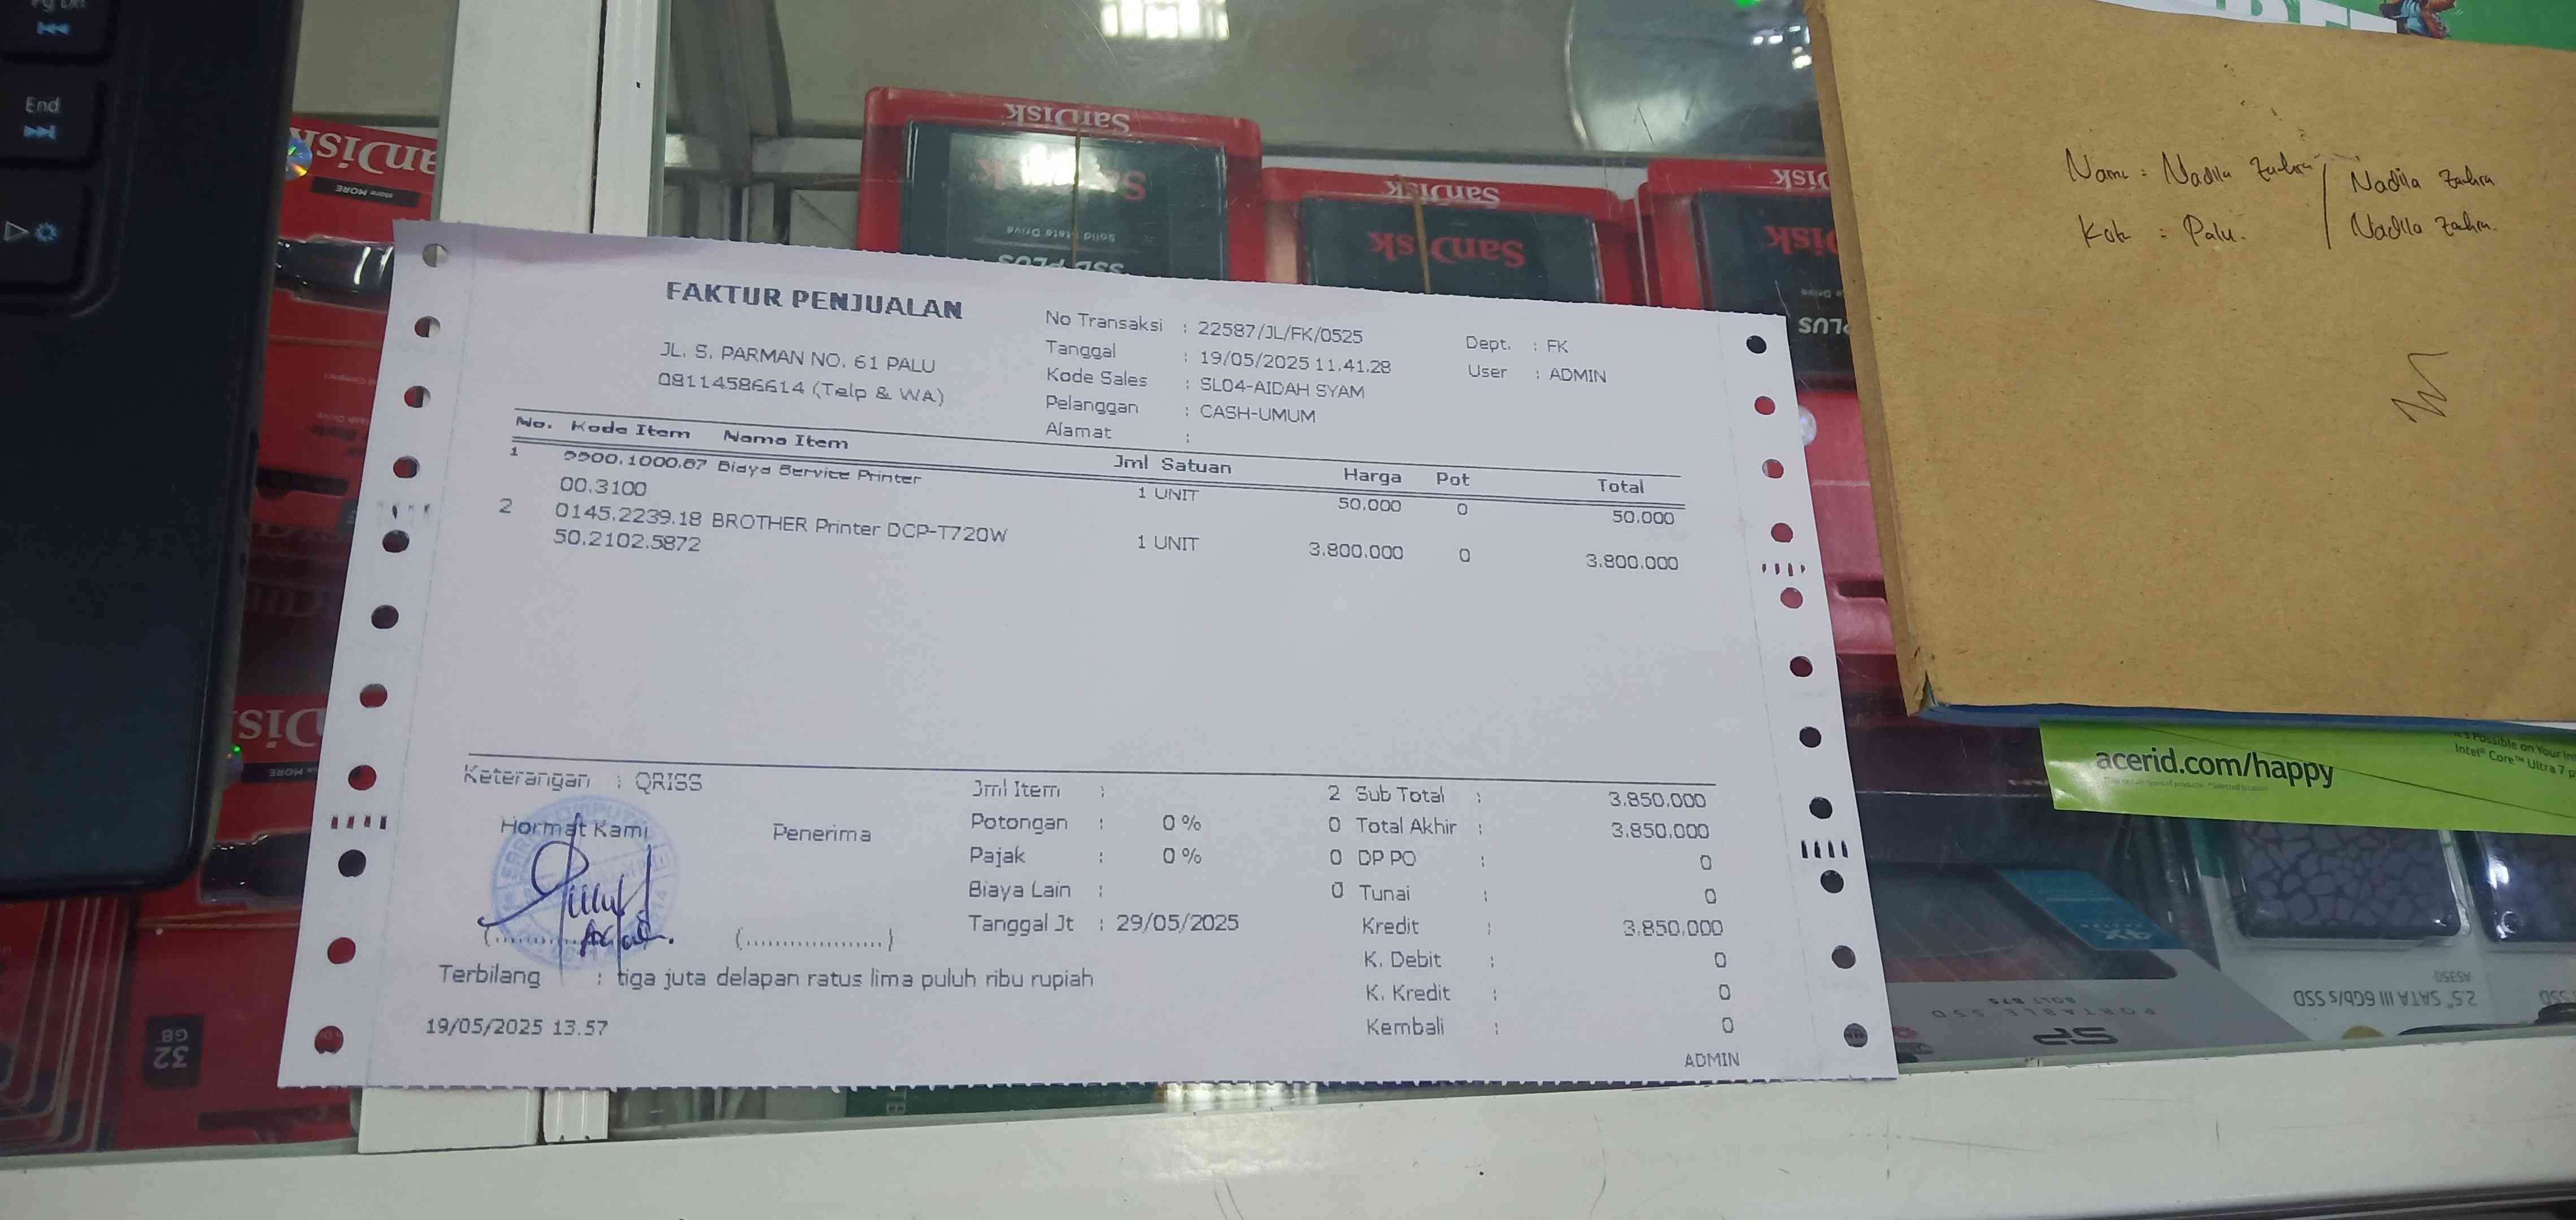 Pg Dn
End
SanDisk
SanDisk
Solid State Drive
SSD PLUS
SanDisk
SanDisk
store MORE
FAKTUR PENJUALAN
JL. S. PARMAN NO. 61 PALU
08114586614 (Telp & WA)
No Transaksi : 22587/JL/FK/0525
Tanggal : 19/05/2025 11.41.28
Kode Sales : SL04-AIDAH SYAM
Pelanggan : CASH-UMUM
Alamat :
Dept. : FK
User : ADMIN
No. Kode Item Nama Item Jml Satuan Harga Pot Total
1 9900.1000.67 Biaya Service Printer 1 UNIT 50.000 0 50.000
00.3100
2 0145.2239.18 BROTHER Printer DCP-T720W 1 UNIT 3.800.000 0 3.800.000
50.2102.5872
Keterangan : QRISS
Hormat Kami
Penerima
(....................)
Jml Item : 2
Potongan : 0 % 0
Pajak : 0 % 0
Biaya Lain : 0
Tanggal Jt : 29/05/2025
Sub Total : 3.850.000
Total Akhir : 3.850.000
DP PO : 0
Tunai : 0
Kredit : 3.850.000
K. Debit : 0
K. Kredit : 0
Kembali : 0
Terbilang : tiga juta delapan ratus lima puluh ribu rupiah
19/05/2025 13.57
ADMIN
Nama : Nadila Zahra / Nadila Zahra
Kota : Palu. / Nadila Zahra.
acerid.com/happy
It's Possible on Your
Intel® Core™ Ultra 7
32
GB
SP
PORTABLE SSD
2.5" SATA III 6Gb/s SSD
AS350